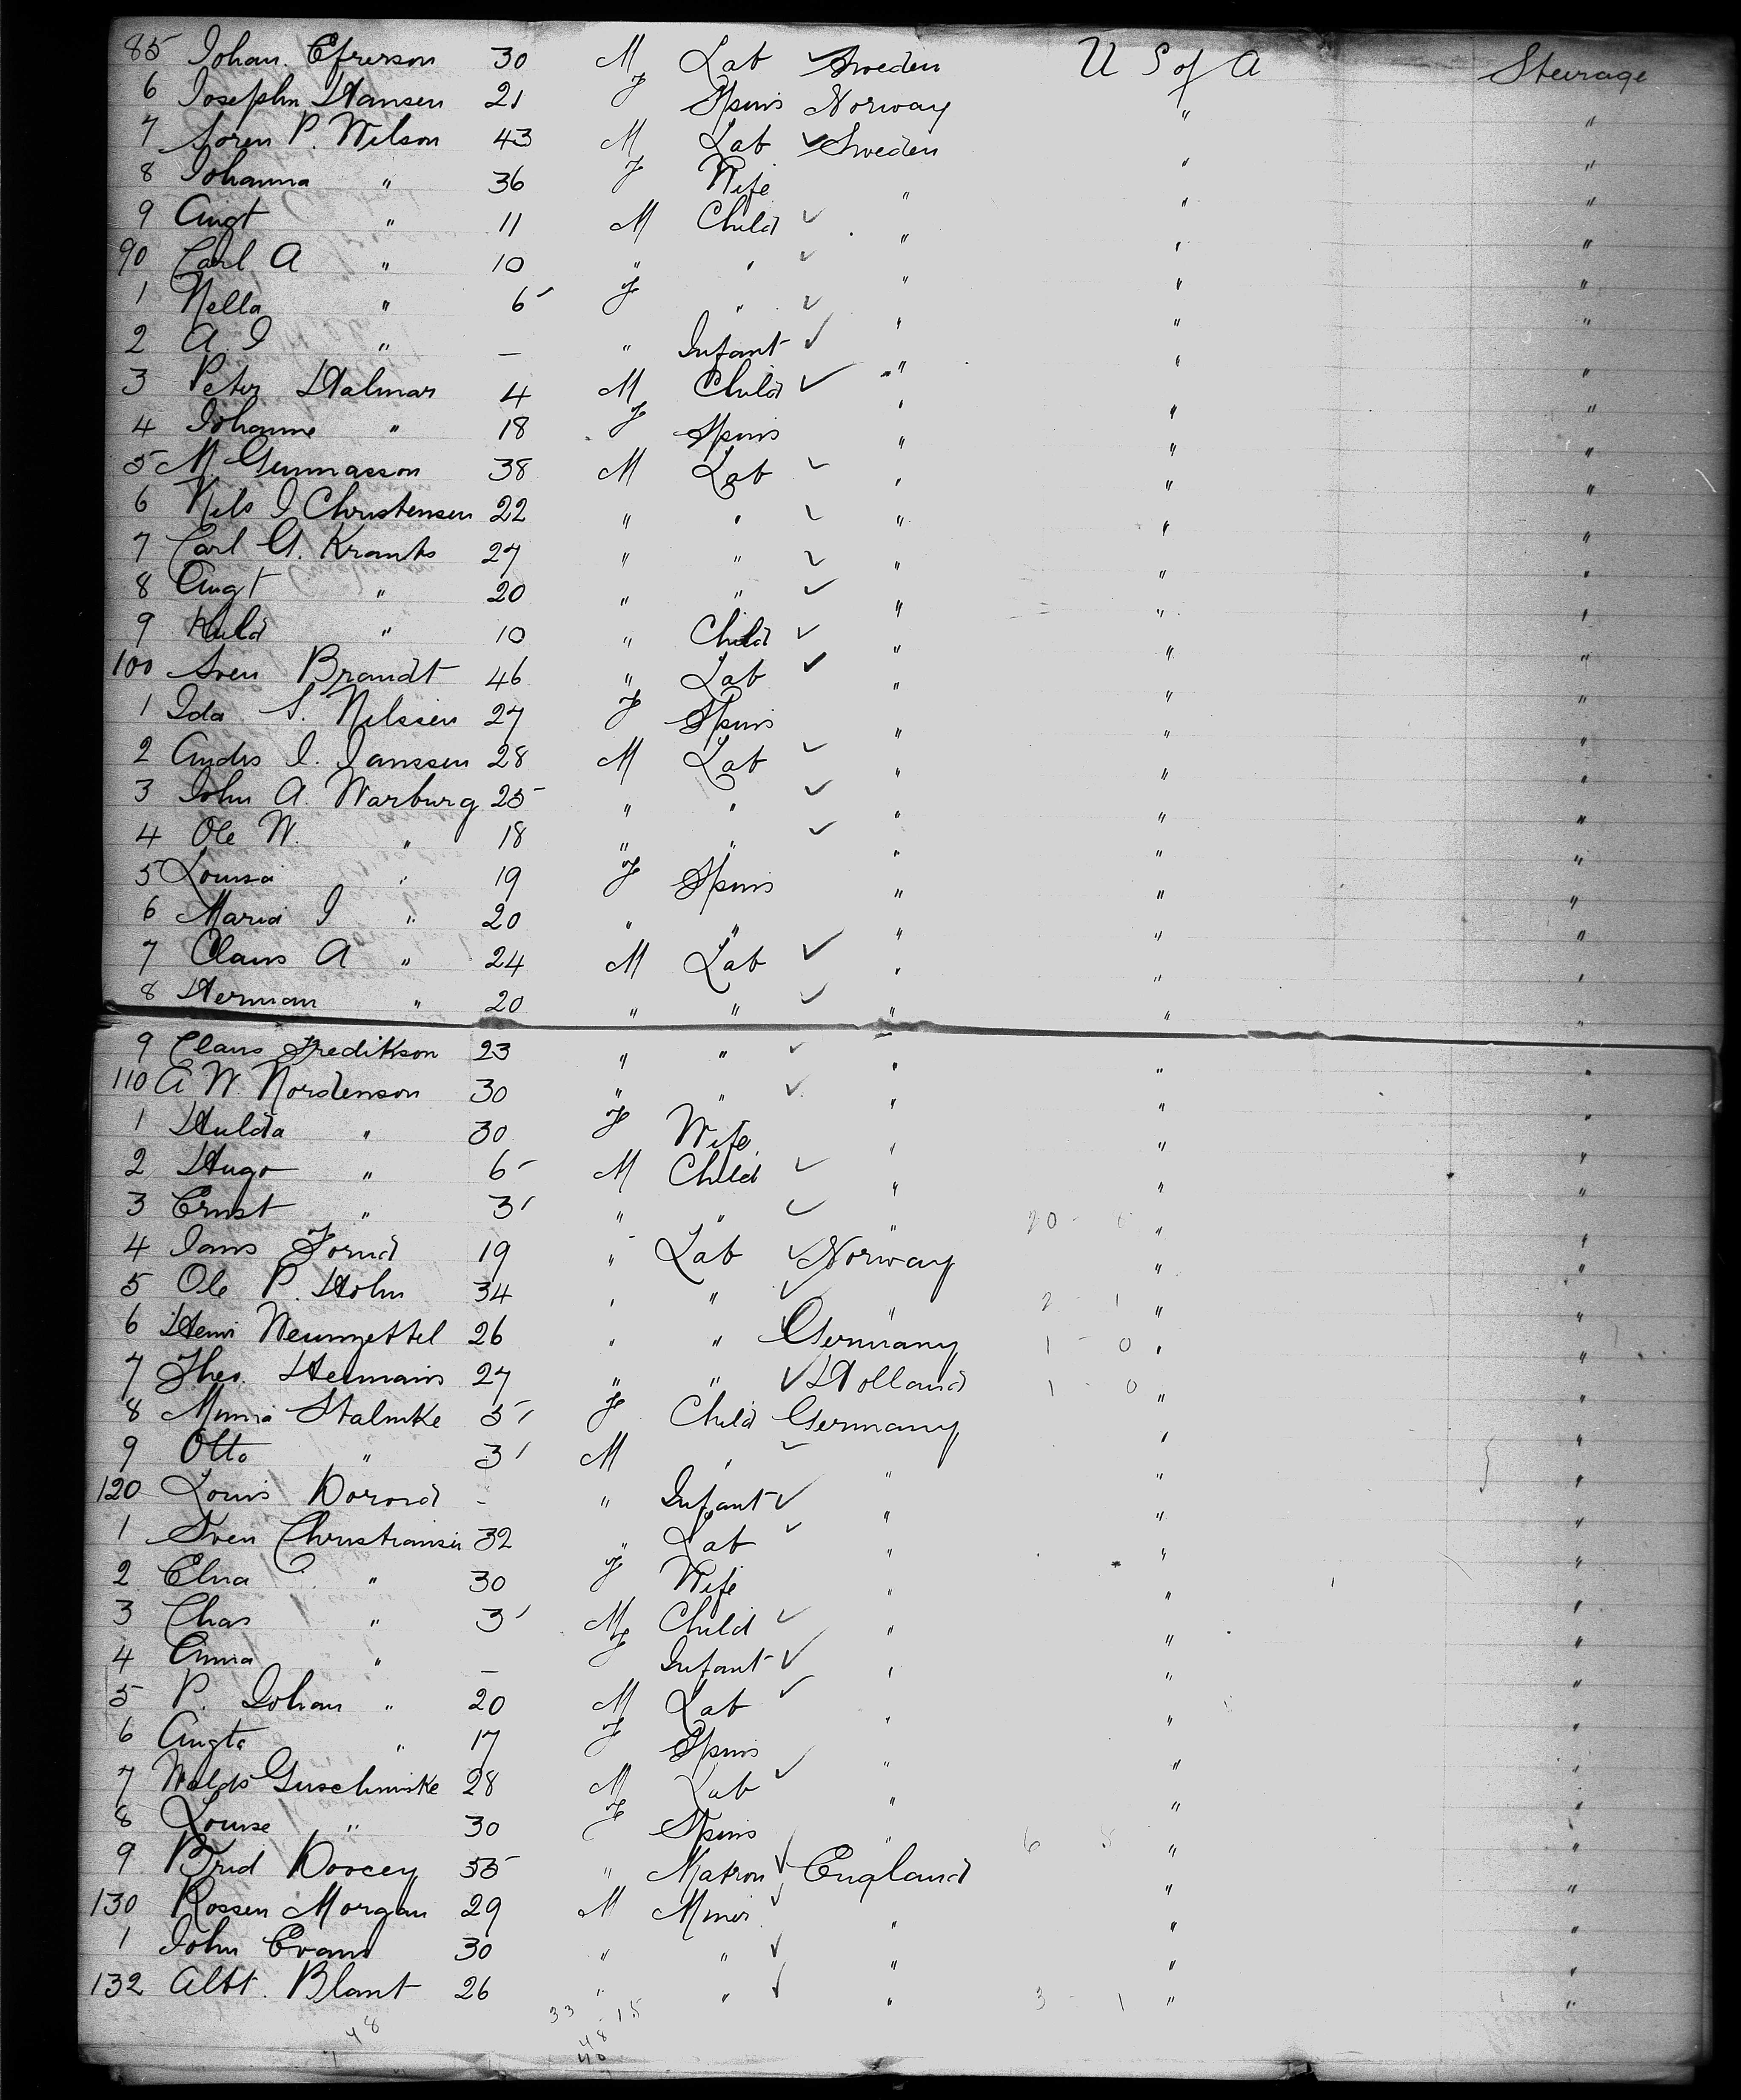 85 Johan. Efrerson 30 M Lab ✓ Sweden U S of A Steerage
6 Josephn Hansen 21 F Spins Norway " "
7 Soren P. Wilson 43 M Lab ✓ Sweden " "
8 Johanna " 36 F Wife " " "
9 Augt " 11 M Child ✓ " " "
90 Carl A " 10 " " ✓ " " "
1 Nella " 6 F " ✓ " " "
2 A. J " — " Infant ✓ " " "
3 Peter Halmar 4 M Child ✓ " " "
4 Johanne " 18 F Spins " " "
5 M. Gunnasson 38 M Lab ✓ " " "
6 Nils J Christensen 22 " " ✓ " " "
7 Carl G. Krantz 27 " " ✓ " " "
8 Augt " 20 " " ✓ " " "
9 Huld " 10 " Child ✓ " " "
100 Sven Brandt 46 " Lab ✓ " " "
1 Ida S. Nilssen 27 F Spins " " "
2 Andrs J. Janssen 28 M Lab ✓ " " "
3 John A. Warburg 25 " " ✓ " " "
4 Ole W. " 18 " " ✓ " " "
5 Louisa " 19 F Spins " " "
6 Maria J " 20 " " " " "
7 Claus A " 24 M Lab ✓ " " "
8 Herman " 20 " " ✓ " " "
9 Claus Fredikson 23 " " ✓ " " "
110 A W. Nordenson 30 " " ✓ " " "
1 Hulda " 30 F Wife " " "
2 Hugo " 6 M Child ✓ " " "
3 Ernst " 3 " " ✓ " 20 - " "
4 Jans 19 " Lab ✓ Norway " "
5 Ole P. Holm 34 " " ✓ " 2 - 1 " "
6 Henri 26 " " ✓ Germany 1 - 0 " "
7 Theo. Hermans 27 " " ✓ Holland 1 - 0 " "
8 Minna Stalmke 5 F Child Germany " "
9 Otto " 3 M " ✓ " " "
120 Louis - " Infant ✓ " " "
1 Sven Christiansen 32 " Lab ✓ " " "
2 Elna " 30 F Wife " " "
3 Chas " 3 M Child ✓ " " "
4 Anna " — F Infant ✓ " " "
5 P. Johan " 20 M Lab ✓ " " "
6 Augta " 17 F Spins " " "
7 Guschmiske 28 M Lab ✓ " " "
8 Louise " 30 F Spins " 6 8 " "
9 Brid Doocey 55 " Matron ✓ England " "
130 Rossen Morgan 29 M Miner ✓ " " "
1 John Evans 30 " " ✓ " " "
132 Albt. Blant 26 " " ✓ " 3 - 1 " "
33 - 15
48 48
48